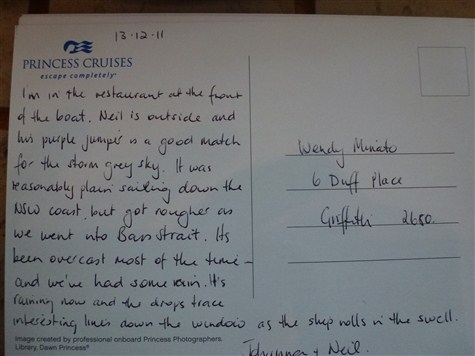 13·12·11
PRINCESS CRUISES
escape completely®
I'm in the restaurant at the front
of the boat. Neil is outside and
his purple jumper is a good match
for the storm grey sky. It was
reasonably plain sailing down the
NSW coast, but got rougher as
we went into Bass Strait. Its
been overcast most of the time -
and we've had some rain. It's
raining now and the drops trace
interesting lines down the window as the ship rolls in the swell.
Johanna + Neil.
Wendy Minato
6 Duff Place
Griffith 2680.
Image created by professional onboard Princess Photographers.
Library, Dawn Princess®